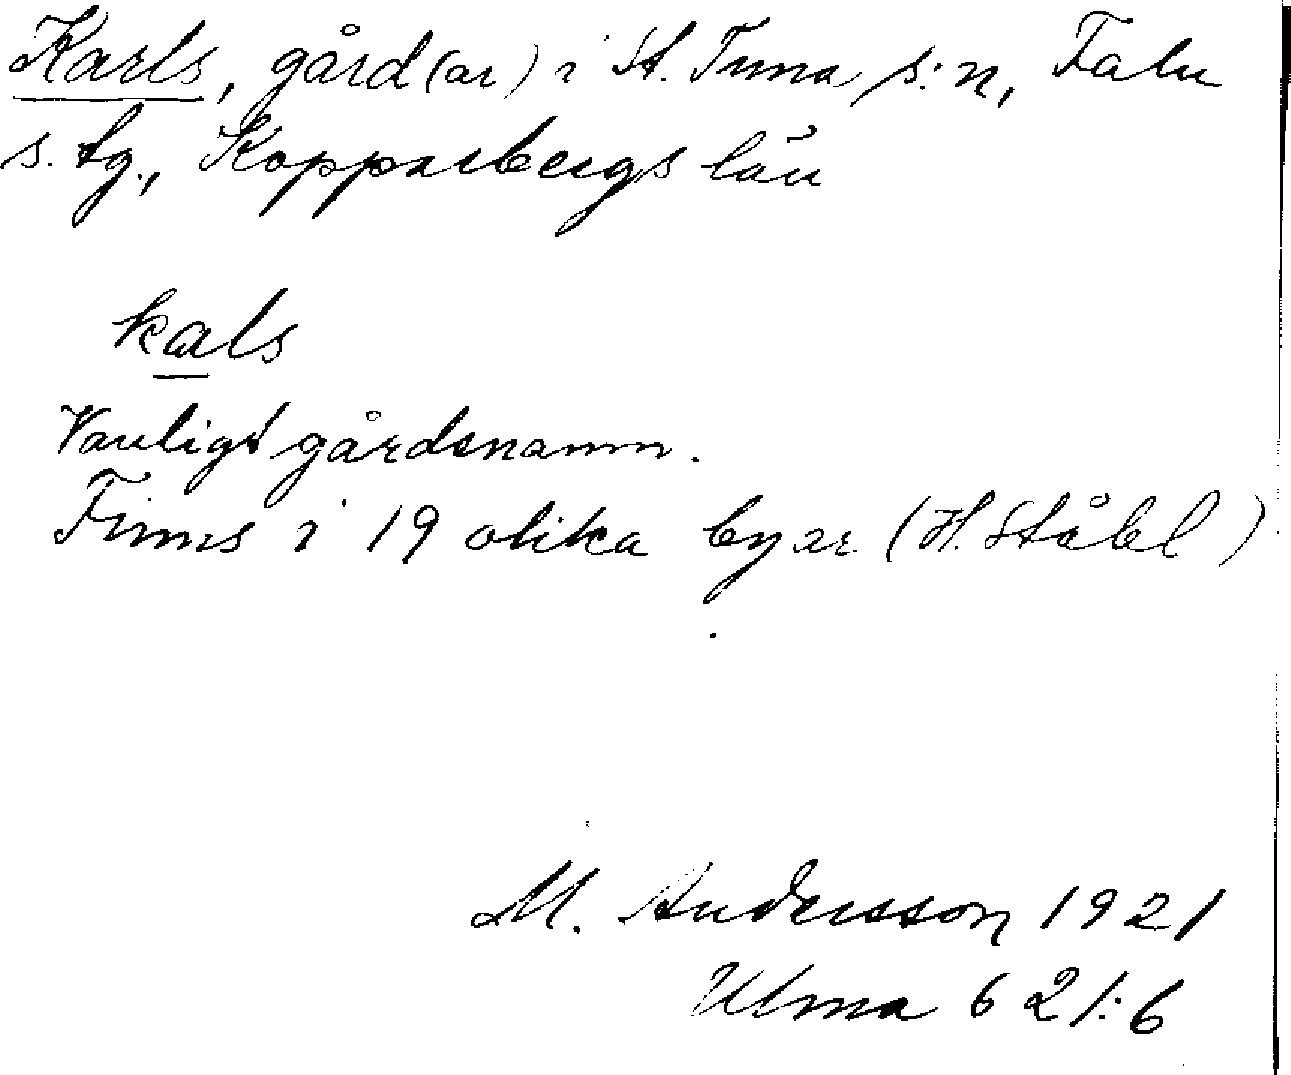 Karls, gård(ar) i St. Tuna s:n, Falu
s. tg., Kopparbergs län
kals
Vanligt gårdsnamn.
Finns i 19 olika byar (H. Ståhl)
M. Andersson 1921
Ulma 621:6